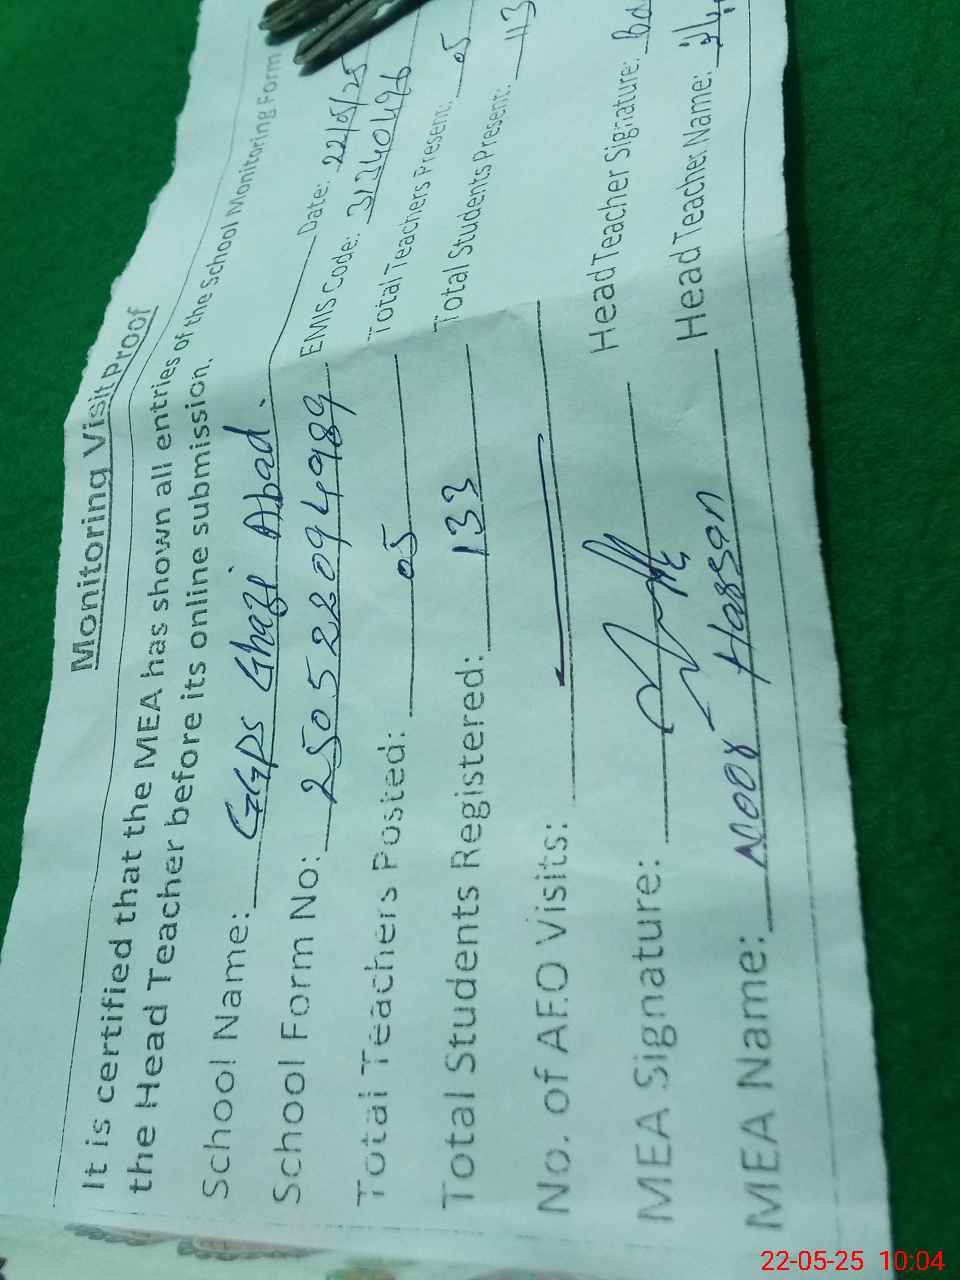 Monitoring Visit Proof
It is certified that the MEA has shown all entries of the School Monitoring Form
the Head Teacher before its online submission.
School Name: GGPS Ghazi Abad. Date: 22/05/25
School Form No: 250522094989 EMIS Code: 31240496
Total Teachers Posted: 05 Total Teachers Present: 05
Total Students Registered: 133 Total Students Present: 113
No. of AEO Visits:
MEA Signature: Head Teacher Signature:
MEA Name: Noor Hassan Head Teacher Name:
22-05-25 10:04